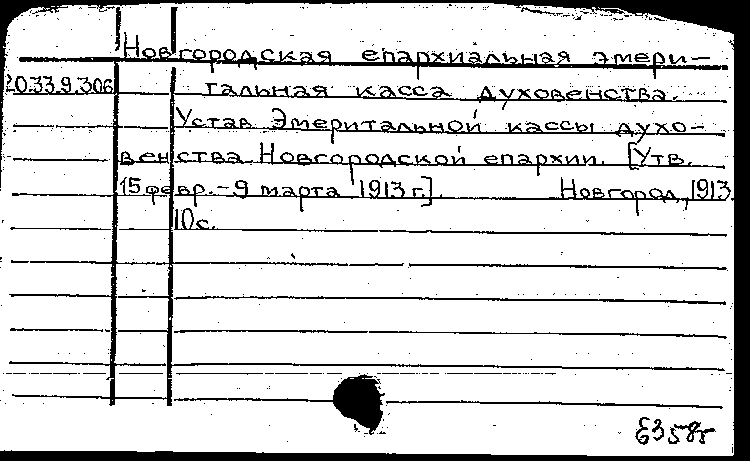 Новгородская епархиальная эмери-
20.33.9.306 тальная касса духовенства.
Устав Эмеритальной кассы духо-
венства Новгородской епархии. [Утв.
15 февр. - 9 марта 1913 г.]. Новгород, 1913.
10 с.